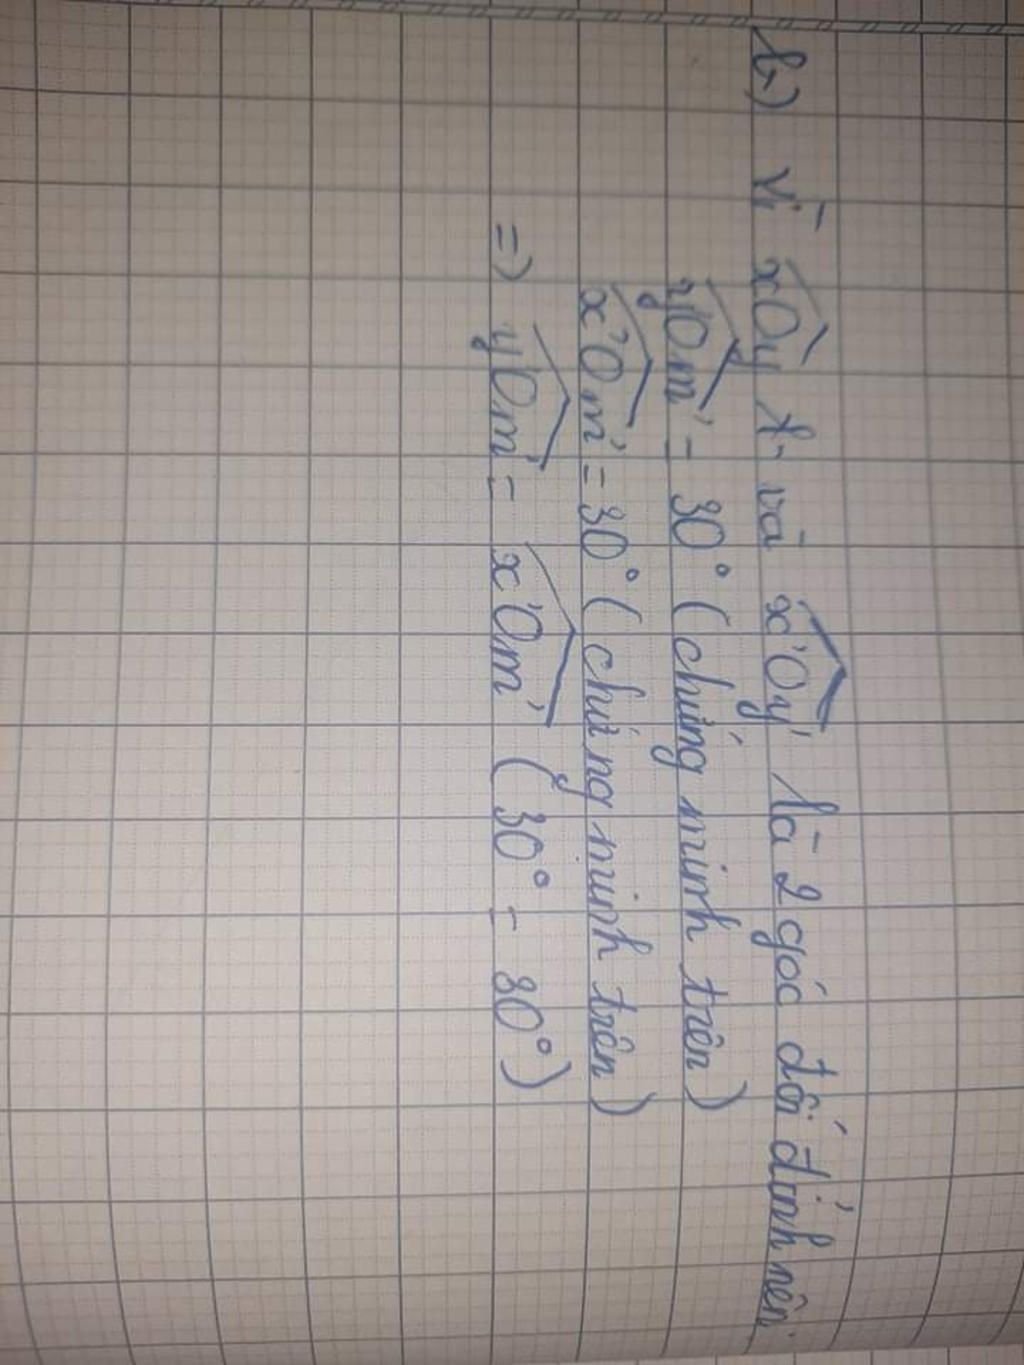 b) Vì xOy và x'Oy' là 2 góc đối đỉnh nên
y'Om' = 30° (chứng minh trên)
x'Om' = 30° (chứng minh trên)
=> y'Om' = x'Om' (30° = 30°)